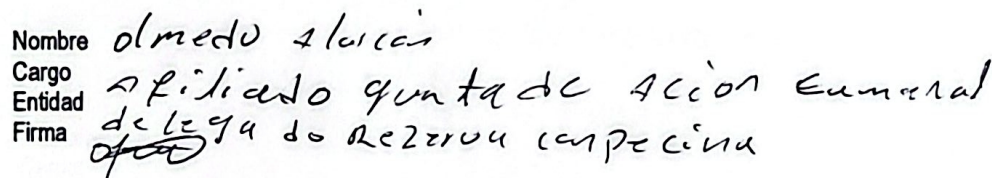 Nombre olmedo Alarcon
Cargo
Entidad Afiliado qunta de Acion Eumenal
Firma delega do Rezerva canpecina